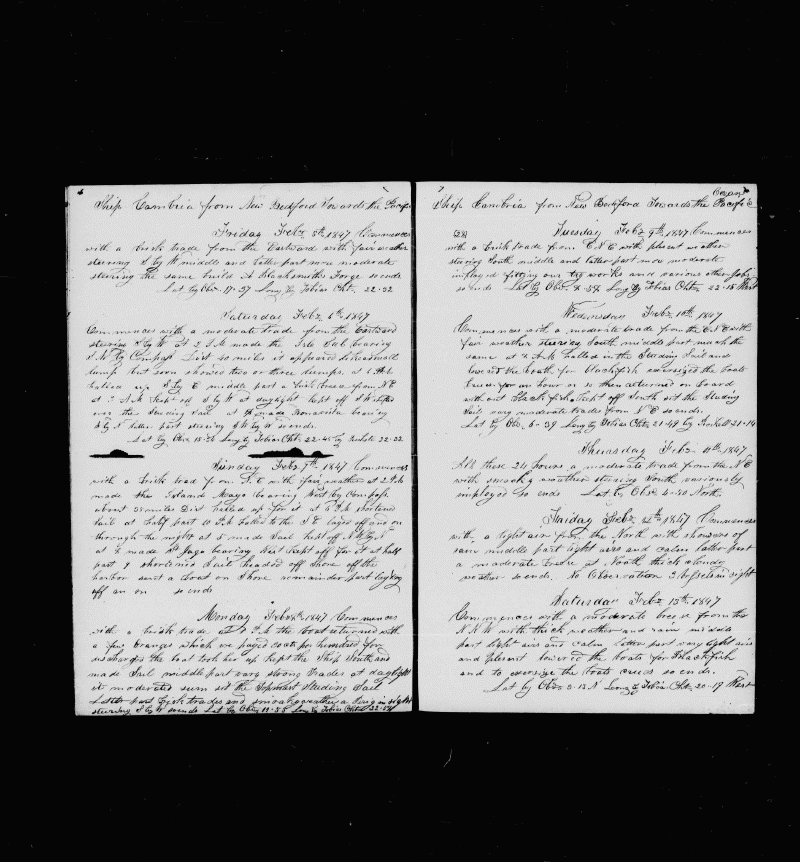 6
Ship Cambria from New Bedford Towards the Pacific
Friday Feby 5th 1847 Commences
with a brisk trade from the Eastward with fair weather
steering S by W middle and latter part more moderate
steering the same build a Blacksmiths Forge so ends
Lat by Obs 17-37 Long by Tobias Cht 22-32
Saturday Feby 6th 1847
Commences with a moderate trade from the Eastward
steering S by W at 2 P.M made the Isle Sal bearing
S.W by Compass Dist 50 miles it appeared
lump but soon showed two or three lumps, at 6 P.M
hailed up S by E middle part a brisk breeze from N E
at 2 A.M kept off S by W at daylight kept off S W
over the Studing Sail at made Bonavista bearing
S by N latter part steering S W by W so ends
Lat by Obs 15- Long by Tobias Cht 22-45 by 22-32
Sunday Feby 7th 1847 Commences
with a brisk trade from N.E with fair weather at 2 P.M
made the Island Mayo bearing West by Compass
about 35 miles Dist hailed up for it at 6 P.M shortened
sail at half past 10 P.M to the S E laged off and on
through the night at 5 made Sail kept off N.W by N
at 7 made St Jago bearing West kept off for it at half
part 9 shortened Sail headed off Shore off the
harbor sent a boat on Shore remainder part laying
off an on so ends
Monday Feby 8th 1847 Commences
with a brisk trade at P.M the boat returned with
a few oranges which we payed cents per hundred for
the boat took her up kept the Ship South and
made Sail middle part very strong trades at daylight
it moderated sum set the Topmast Studing Sail
Latter part brisk trades and smoky weather a Brig in sight
steering S by W so ends Lat by Obs 13-55 Long by Tobias Cht 22-54
7
Ocean
Ship Cambria from New Bedford Towards the Pacific
Tuesday Feby 9th 1847 Commences
with a brisk trade from E.N.E with plesent weather
steering South middle and latter part more moderate
imployed fitting our try works and various other jobs
so ends Lat by Obs 54 Long by Tobias Cht 22-15 West
Wednesday Feby 10th 1847
Commences with a moderate trade from the E.N.E with
fair weather steering South middle part much the
same at 7 A.M hailed in the Studing Sail and
lowered the boats for blackfish exersized the boats
crews for an hour or so then returned on board
without Blackfish kept off South set the Studing
Sail very moderate trades from N E so ends
Lat by Obs 6-39 Long by Tobias Cht 21-49 by 21-14
Thursday Feby 11th 1847
All these 24 hours a moderate trade from the N E
with smoky weather steering South variously
imployed so ends Lat by Obs 4-50 North
Friday Feby 12th 1847 Commences
with a light air from the North with showers of
rain middle part light airs and calm latter part
a moderate breze at North thick cloudy
weather so ends. No Observation 3 Vessels in sight
Saturday Feby 13th 1847
Commences with a moderate breeze from the
N.N.W with thick weather and rain middle
part light airs and calm latter part very light airs
and plesent lowered the boats for Blackfish
and to exersize the boats crews so ends.
Lat by Obs 3-13 N Long by Tobias Cht 20-19 West